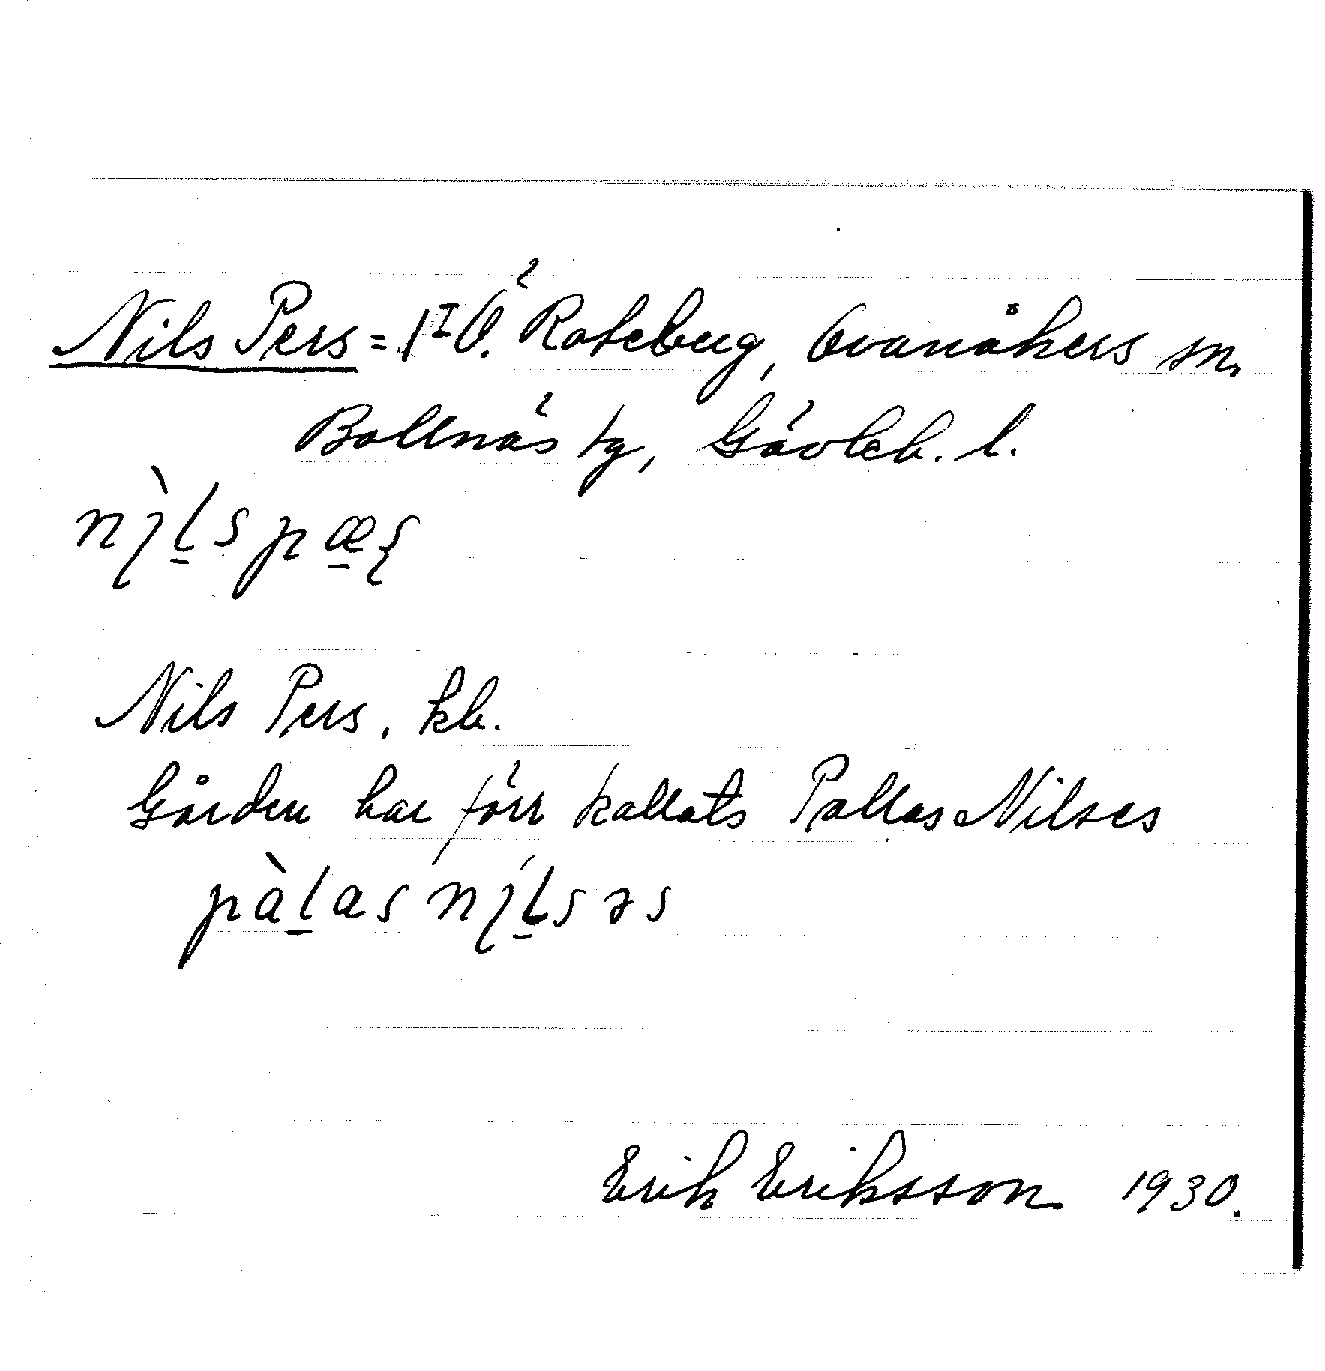 Nils Pers = 1ᴵ Ö. Roteberg, Ovanåkers sn.
Bollnäs tg, Gävleb. l.
Nils Pers. kb.
Gården har förr kallats Pallas Nilses
pàl̠as nɩ́l̠səs
Erik Eriksson 1930.